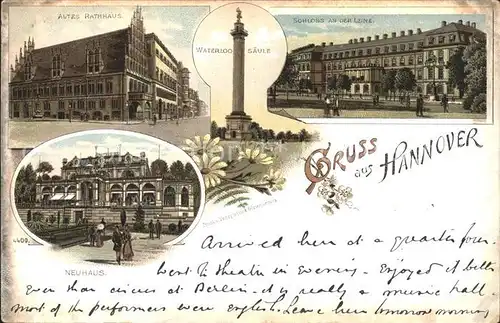 ALTES RATHHAUS.
WATERLOO SÄULE
SCHLOSS AN DER LEINE.
GRUSS
aus HANNOVER
NEUHAUS.
Arrived here at a quarter four.
Went to theatre in evening - Enjoyed it better
than circus at Berlin - it is really a music hall
most of the performers were English. Leave here tomorrow morning